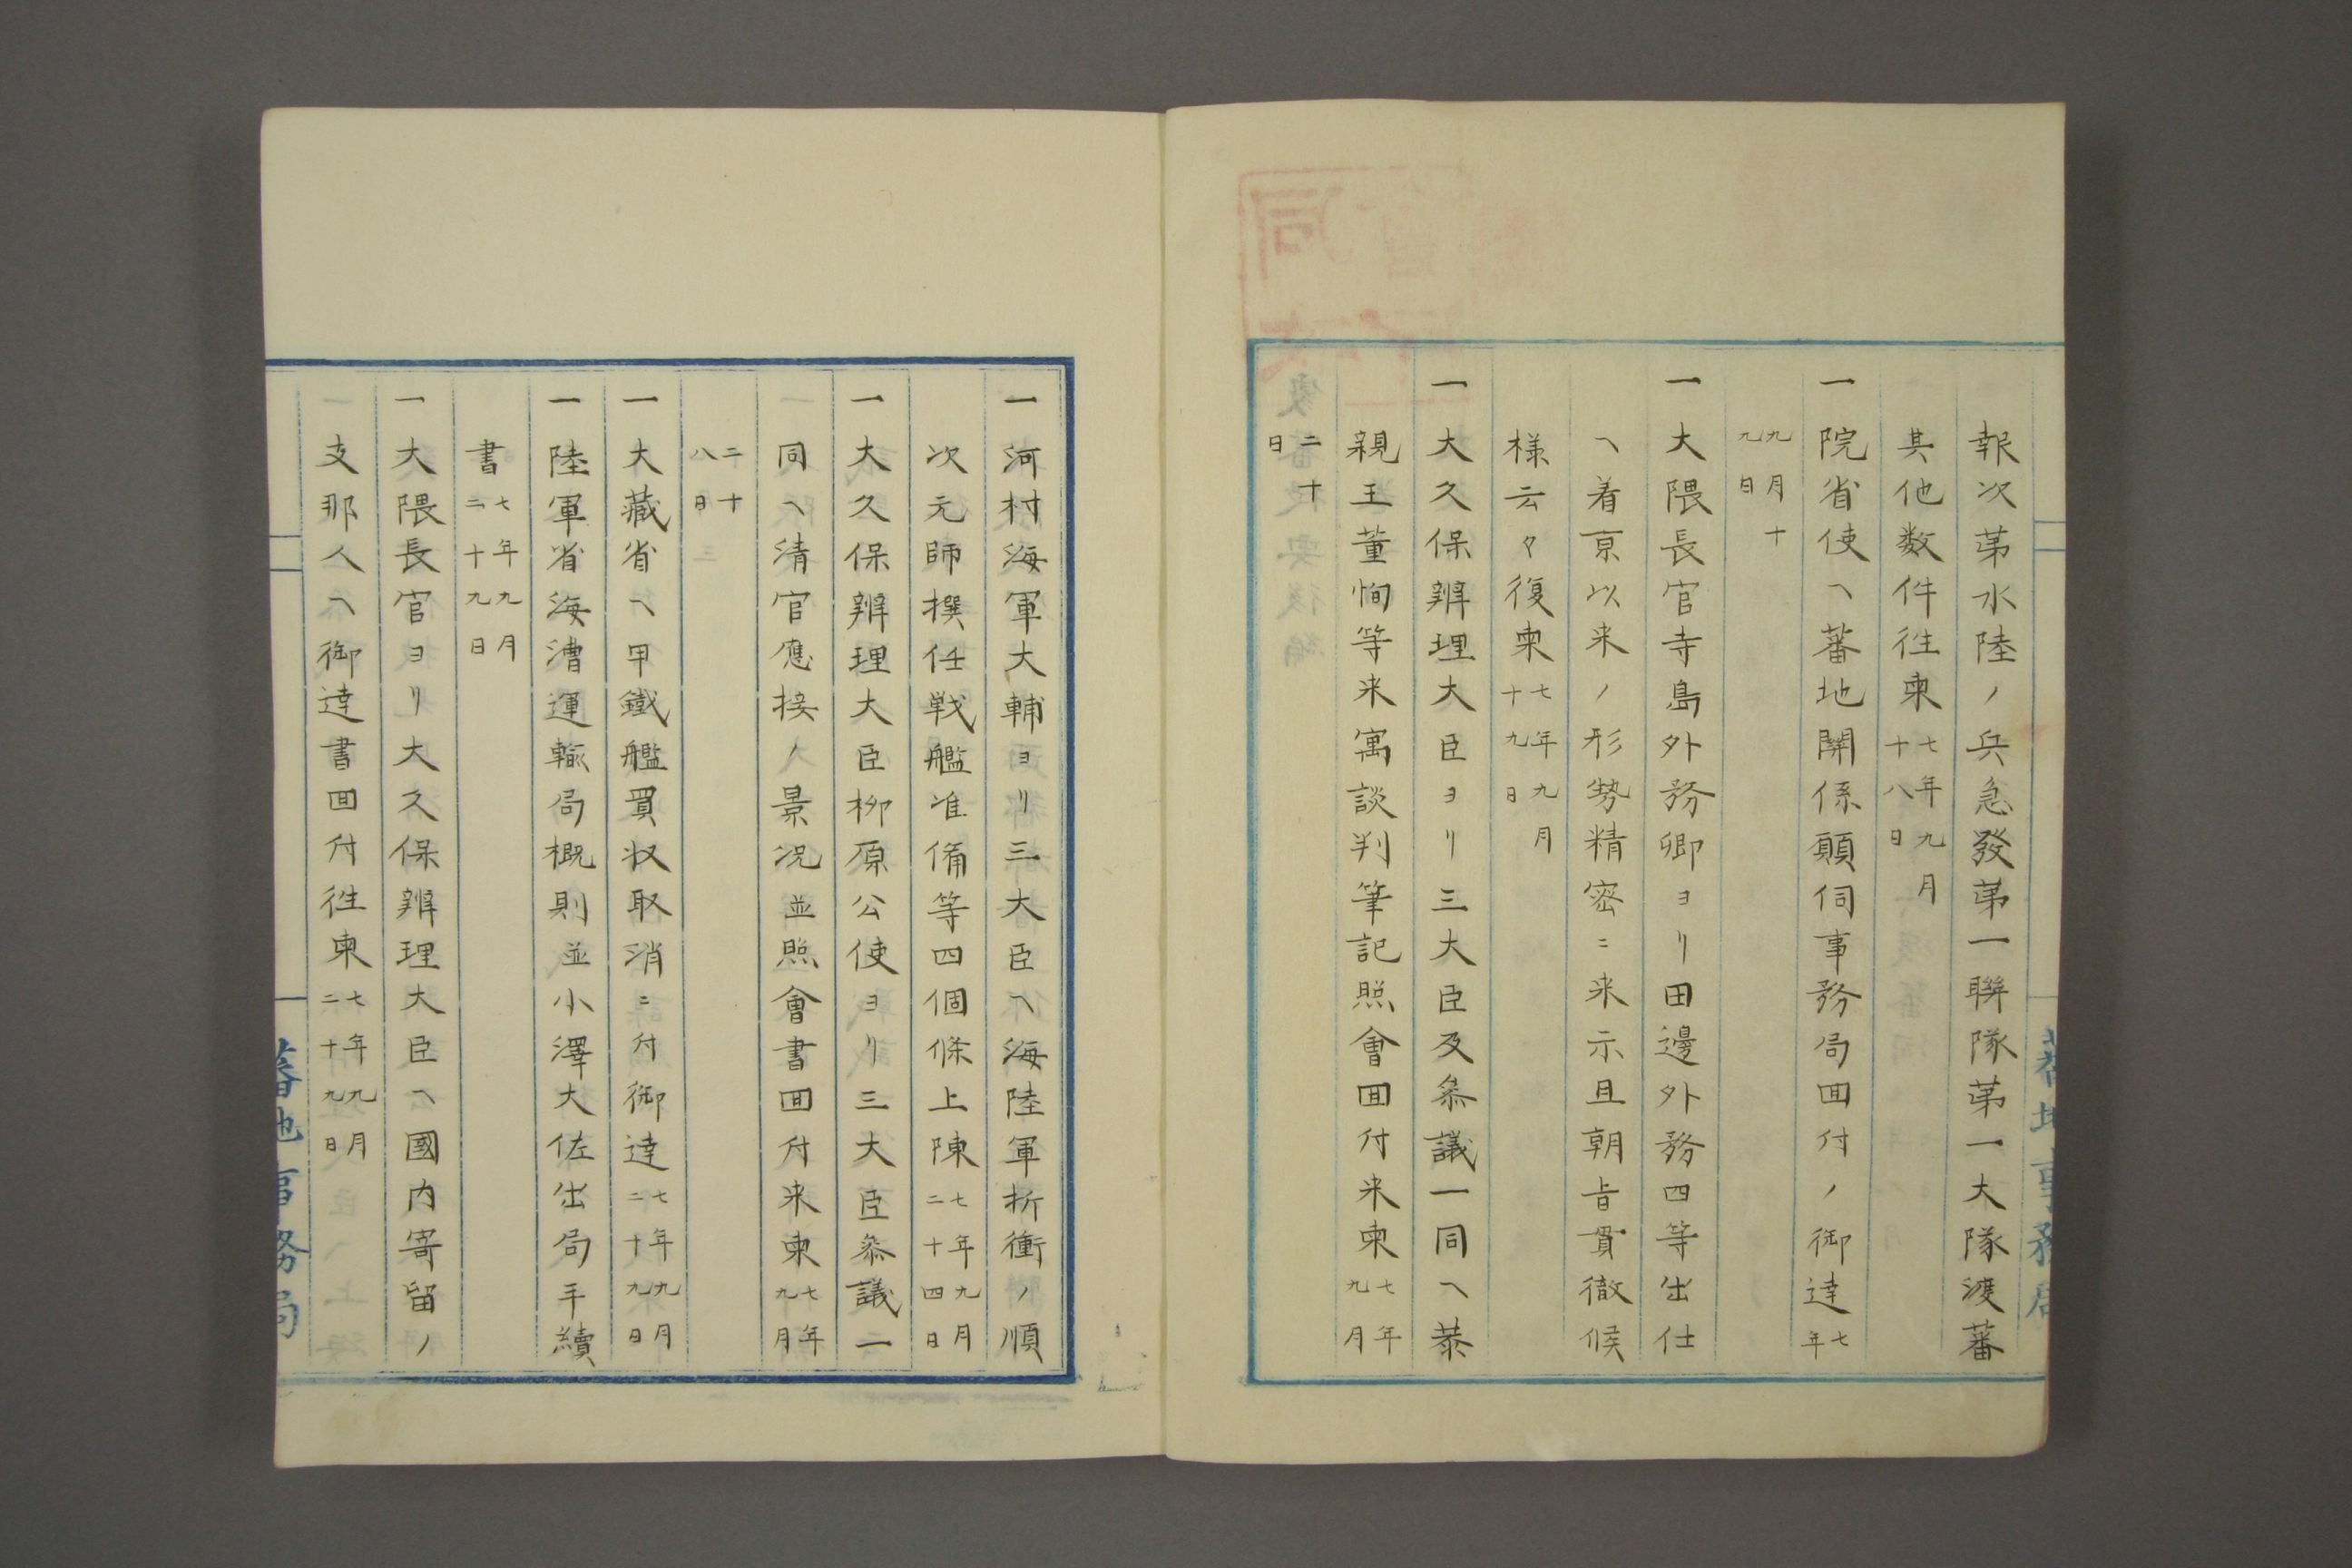 報次第水陸ノ兵急發第一聯隊第一大隊渡蕃
其他数件徃柬七年九月十八日
一院省使ヘ蕃地関係願伺事務局囬付ノ御達七年
九月十九日
一大隈長官寺島外務卿ヨリ田邊外務四等出仕
ヘ着亰以来ノ形勢精密ニ来示且朝㫖貫徹候
様云々復柬七年九月十九日
一大久保辨理大臣ヨリ三大臣及叅議一同ヘ恭
親王董恂等来寓談判筆記照會囬付来柬七年九月
二十日
蕃地事務局
一河村海軍大輔ヨリ三大臣ヘ海陸軍折衝ノ順
次元師撰任戦艦准備等四個條上陳七年九月二十四日
一大久保辨理大臣柳原公使ヨリ三大臣叅議一
同ヘ清官應接ノ景況並照會書囬付来柬七年九月
二十八日
一大藏省ヘ甲鐵艦買収取消ニ付御達七年九月二十九日
一陸軍省海漕運輸局概則並小澤大佐出局手續
書七年九月二十九日
一大隈長官ヨリ大久保辨理大臣ヘ國内寄留ノ
支那人ヘ御達書囬付徃柬七年九月二十九日
蕃地事務局